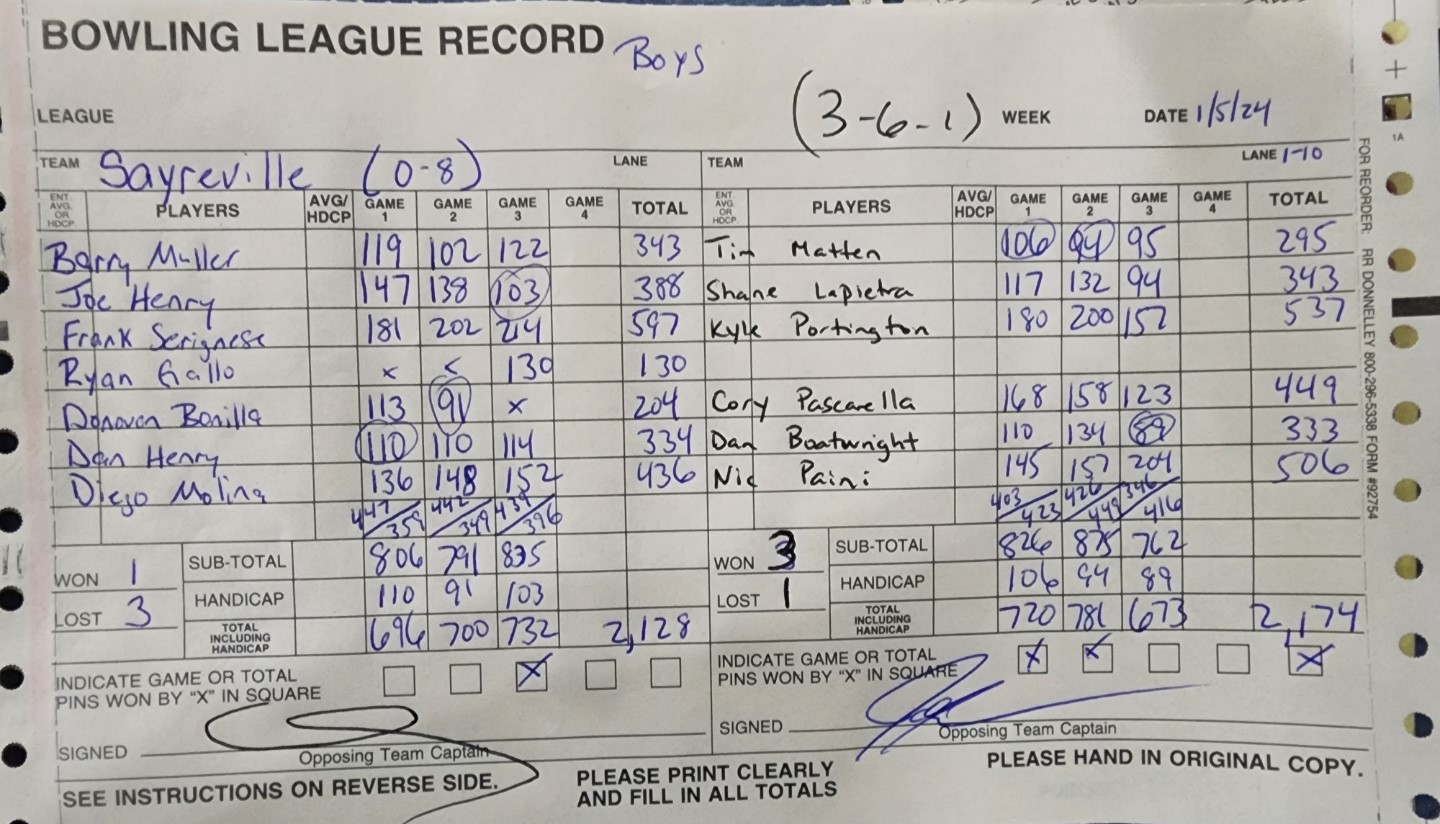 BOWLING LEAGUE RECORD Boys
LEAGUE (3-6-1) WEEK DATE 1/5/24
TEAM Sayreville (0-8) LANE TEAM LANE 1-10
1A
ENT. AVG. OR HDCP. PLAYERS AVG/HDCP GAME 1 GAME 2 GAME 3 GAME 4 TOTAL ENT. AVG. OR HDCP. PLAYERS AVG/HDCP GAME 1 GAME 2 GAME 3 GAME 4 TOTAL
Barry Muller 119 102 122 343 Tim Matten 106 94 95 295
Joe Henry 147 138 103 388 Shane Lapietra 117 132 94 343
Frank Serignese 181 202 214 597 Kyle Portington 180 200 157 537
Ryan Gallo x x 130 130
Donovan Bonilla 113 91 x 204 Cory Pascarella 168 158 123 449
Dan Henry 110 110 114 334 Dan Boatwright 110 134 89 333
Diego Molina 136 148 152 436 Nic Paini 145 157 204 506
447/359 442/349 439/396 403/423 426/449 346/416
WON 1 SUB-TOTAL 806 791 835 WON 3 SUB-TOTAL 826 875 762
LOST 3 HANDICAP 110 91 103 LOST 1 HANDICAP 106 94 89
TOTAL INCLUDING HANDICAP 696 700 732 2,128 TOTAL INCLUDING HANDICAP 720 781 673 2,174
INDICATE GAME OR TOTAL X INDICATE GAME OR TOTAL X X X
PINS WON BY "X" IN SQUARE PINS WON BY "X" IN SQUARE
SIGNED SIGNED
Opposing Team Captain Opposing Team Captain
SEE INSTRUCTIONS ON REVERSE SIDE. PLEASE PRINT CLEARLY PLEASE HAND IN ORIGINAL COPY.
AND FILL IN ALL TOTALS
FOR REORDER: RR DONNELLEY 800-296-5338 FORM #92754